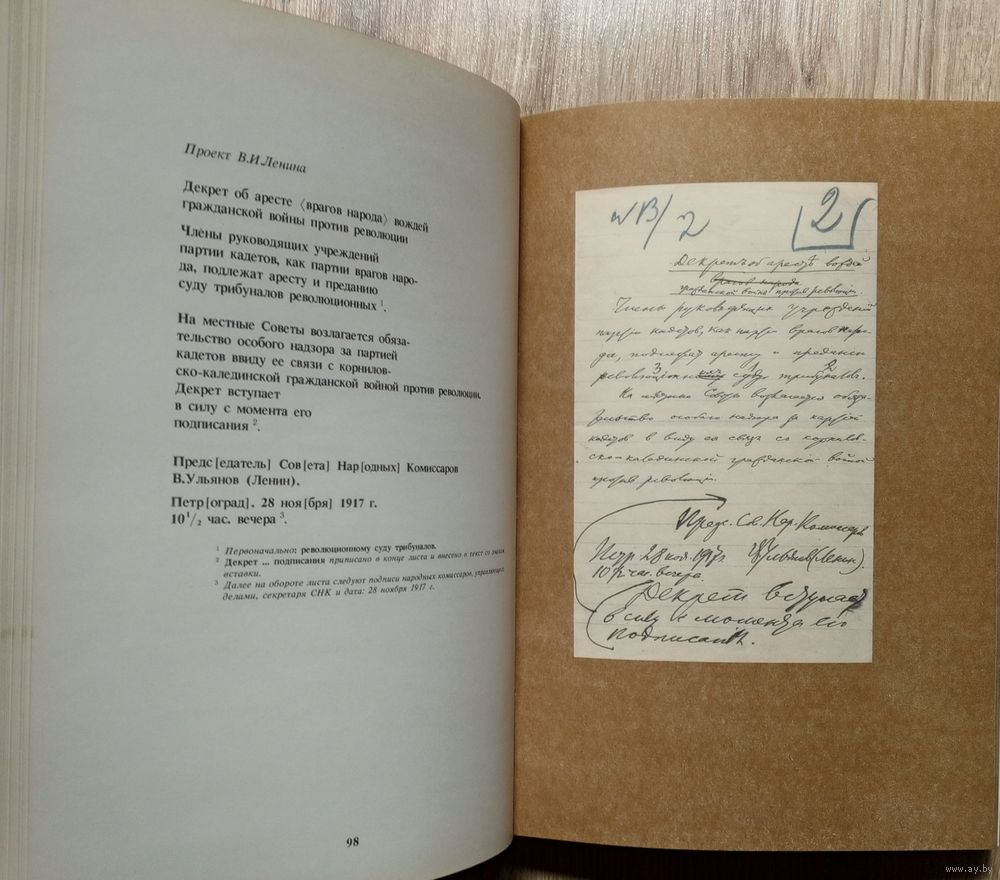 Проект В.И.Ленина
Декрет об аресте ⟨врагов народа⟩ вождей
гражданской войны против революции
Члены руководящих учреждений
партии кадетов, как партии врагов наро-
да, подлежат аресту и преданию
суду трибуналов революционных ¹.
На местные Советы возлагается обяза-
тельство особого надзора за партией
кадетов ввиду ее связи с корнилов-
ско-калединской гражданской войной против революции.
Декрет вступает
в силу с момента его
подписания ².
Предс[едатель] Сов[ета] Нар[одных] Комиссаров
В.Ульянов (Ленин).
Петр[оград]. 28 ноя[бря] 1917 г.
10 ¹/₂ час. вечера ³.
¹ Первоначально: революционному суду трибуналов.
² Декрет ... подписания приписано в конце листа и внесено в текст со знаком
вставки.
³ Далее на обороте листа следуют подписи народных комиссаров, управляющего
делами, секретаря СНК и дата: 28 ноября 1917 г.
98
2
2
Декретъ об арестѣ вождей
врагов народа
гражданской войны против революции
Члены руководящих учреждений
партии кадетов, как партии врагов наро-
да, подлежат аресту и преданию
3 1 2
революцион суду трибуналов.
На местные Советы возлагается обяза-
тельство особого надзора за партией
кадетов в виду ея связи со корнилов-
ско-калединской гражданской войной
против революции.
Предс. Сов. Нар. Комиссаров
Птр 28 ноя. 1917 г. В.Ульянов (Ленин).
10 1/2 час. вечера.
Декрет вступает
в силу с момента его
подписания.
www.ay.by